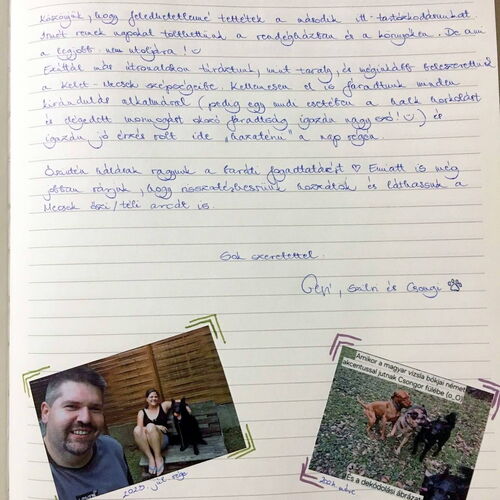 Köszönjük, hogy feledhetetlenné tettétek a második itt-tartózkodásunkat.
Ismét remek napokat töltöttünk a vendégházban és a környéken. De ami
a legjobb: nem utoljára! ☺
Ezúttal más útvonalakon túráztunk, mint tavaly, és megint beleszerettünk
a Kelet-Mecsek szépségeibe. Kellemesen el is fáradtunk minden
kirándulás alkalmával (pedig egy mudi esetében a halk horkolást
és elégedett morgást okozó fáradtság igazán nagy szó! ☺), és
igazán jó érzés volt ide "hazatérni" a nap végén.
Őszintén hálásak vagyunk a baráti fogadtatásért ♡ Emiatt is még
jobban várjuk, hogy visszatérhessünk hozzátok és láthassuk a
Mecsek őszi/téli arcát is.
Sok szeretettel:
Gépi, Szilvi és Csongi
2023. júl. vége
Amikor a magyar vizsla bókjai német
akcentussal jutnak Csongor fülébe (o_O)
És a dekódolási ábrázat